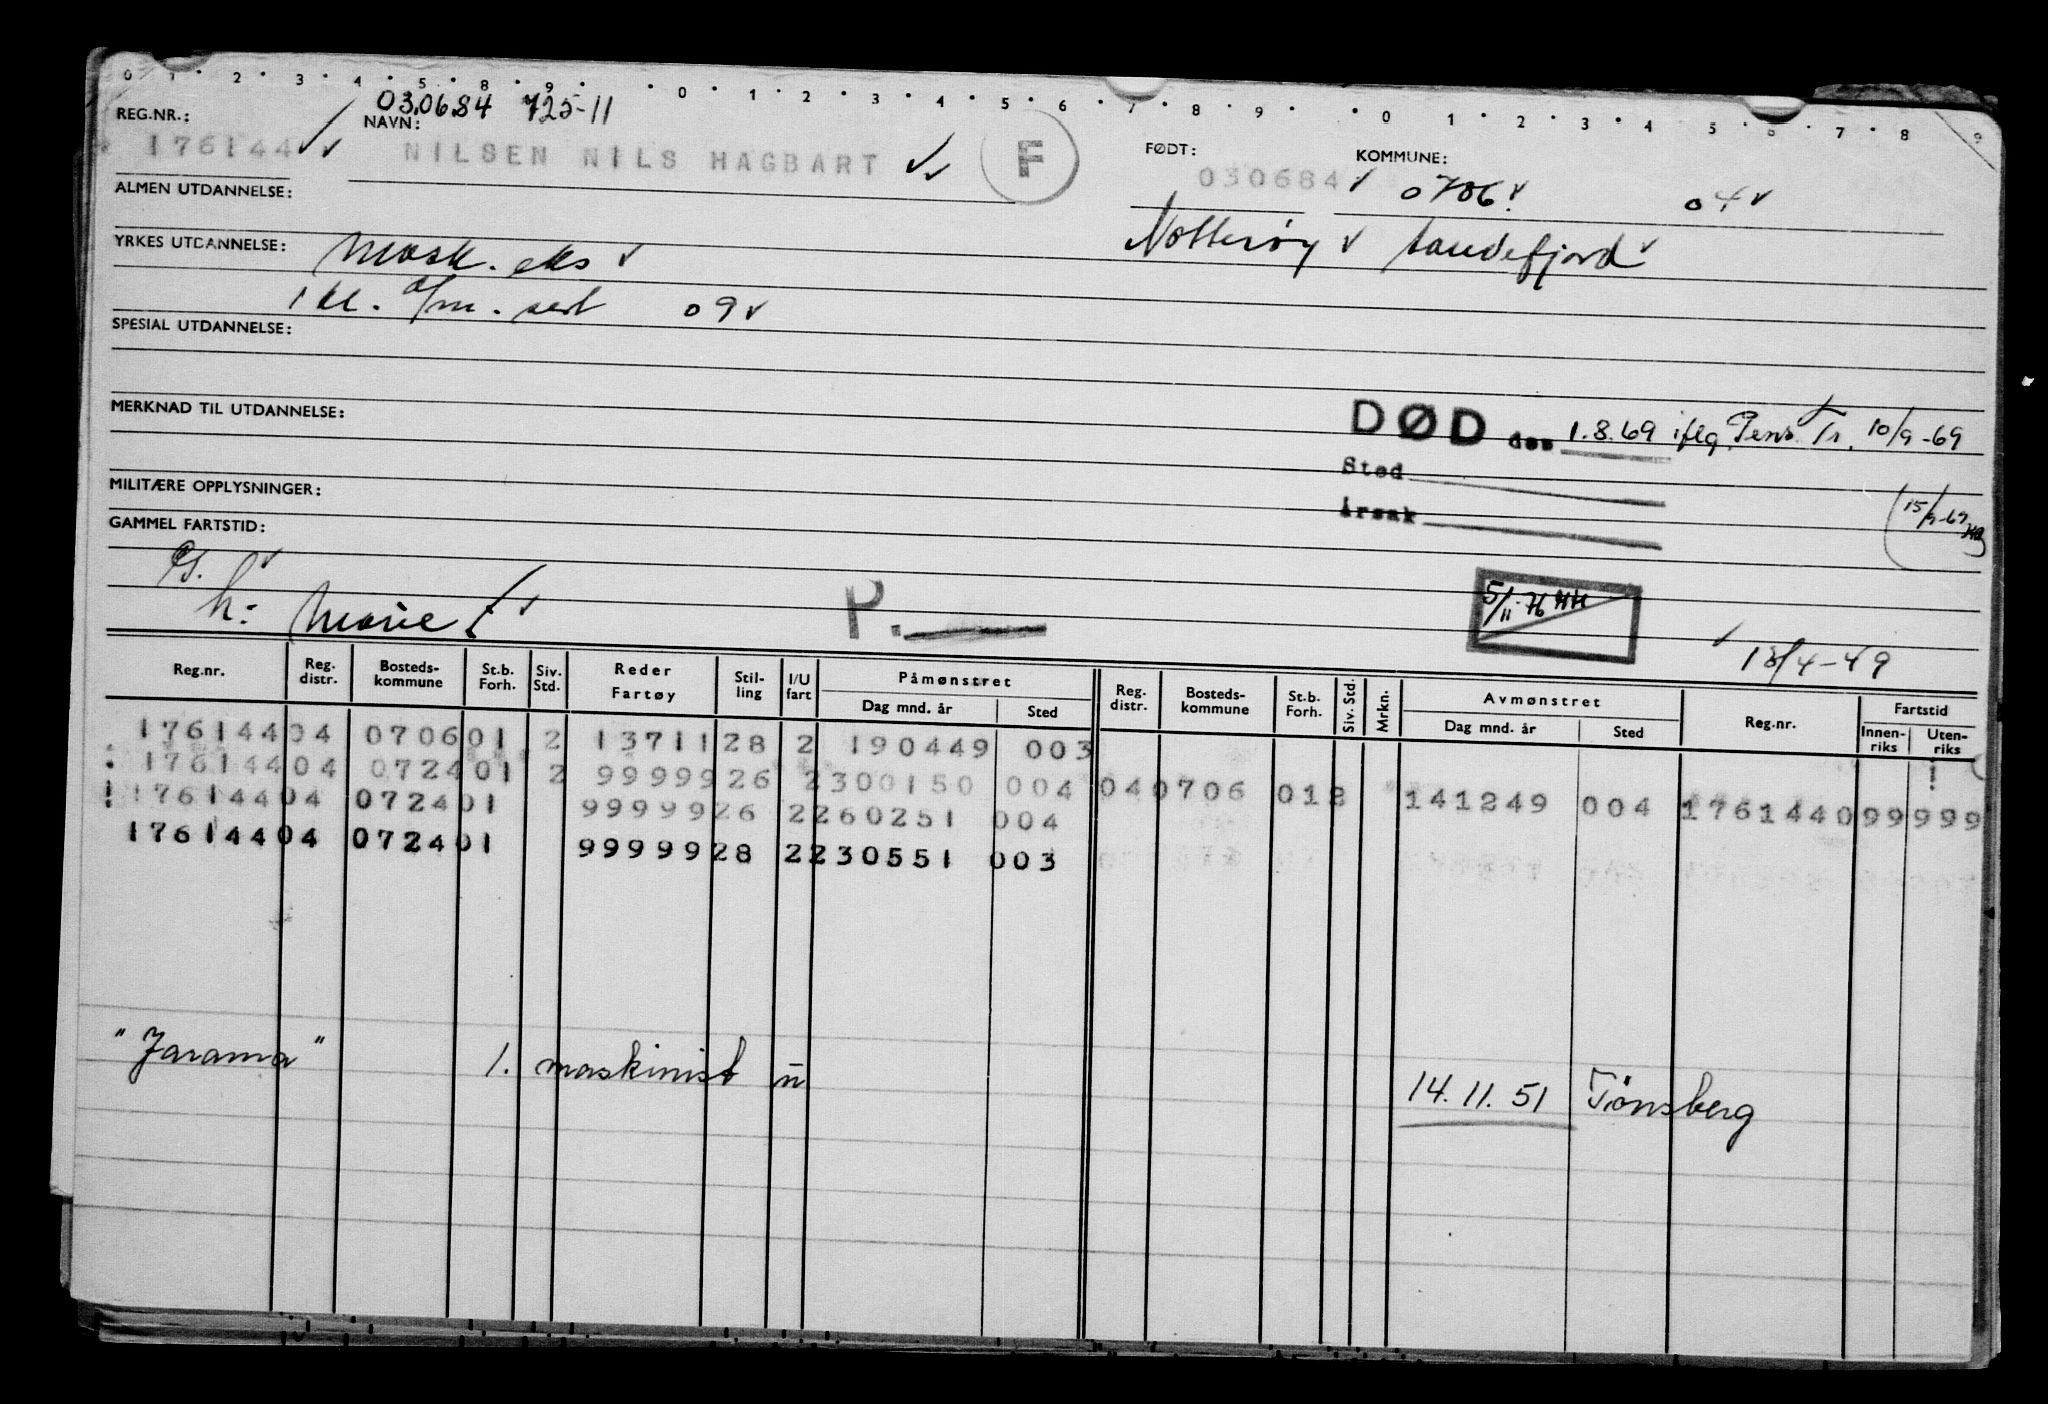 0 1 2 3 4 5 8 9 0 1 2 3 4 5 6 7 8 9 0 1 2 3 4 5 6 7 8 9
03.06.84 725-11
REG.NR.: NAVN: FØDT: KOMMUNE:
176144 NILSEN NILS HAGBART F 030684 0706 04
ALMEN UTDANNELSE:
Nøtterøy Sandefjord
YRKES UTDANNELSE: Mask. eks
1 kl. sert 09
SPESIAL UTDANNELSE:
MERKNAD TIL UTDANNELSE:
DØD den 1.8.69 iflg. Pens. Tr. 10/9-69
Sted
MILITÆRE OPPLYSNINGER:
Årsak
15/9-69
GAMMEL FARTSTID:
h: Marie
P.
5/11-76
18/4-49
Reg.nr. Reg. distr. Bosteds-kommune St.b. Forh. Siv. Std. Reder Fartøy Stil-ling I/U fart Påmønstret Dag mnd. år Sted Reg. distr. Bosteds-kommune St.b. Forh. Siv. Std. Mrkn. Avmønstret Dag mnd. år Sted Reg.nr. Fartstid Innen-riks Uten-riks
176144 04 0706 01 2 13711 28 2 190449 003
176144 04 0724 01 2 99999 26 2 300150 004 04 0706 01 2 141249 004 176144 099 999
176144 04 0724 01 99999 26 2 260251 004
176144 04 0724 01 99999 28 2 230551 003
"Jarama" 1. maskinist u 14.11.51 Tønsberg